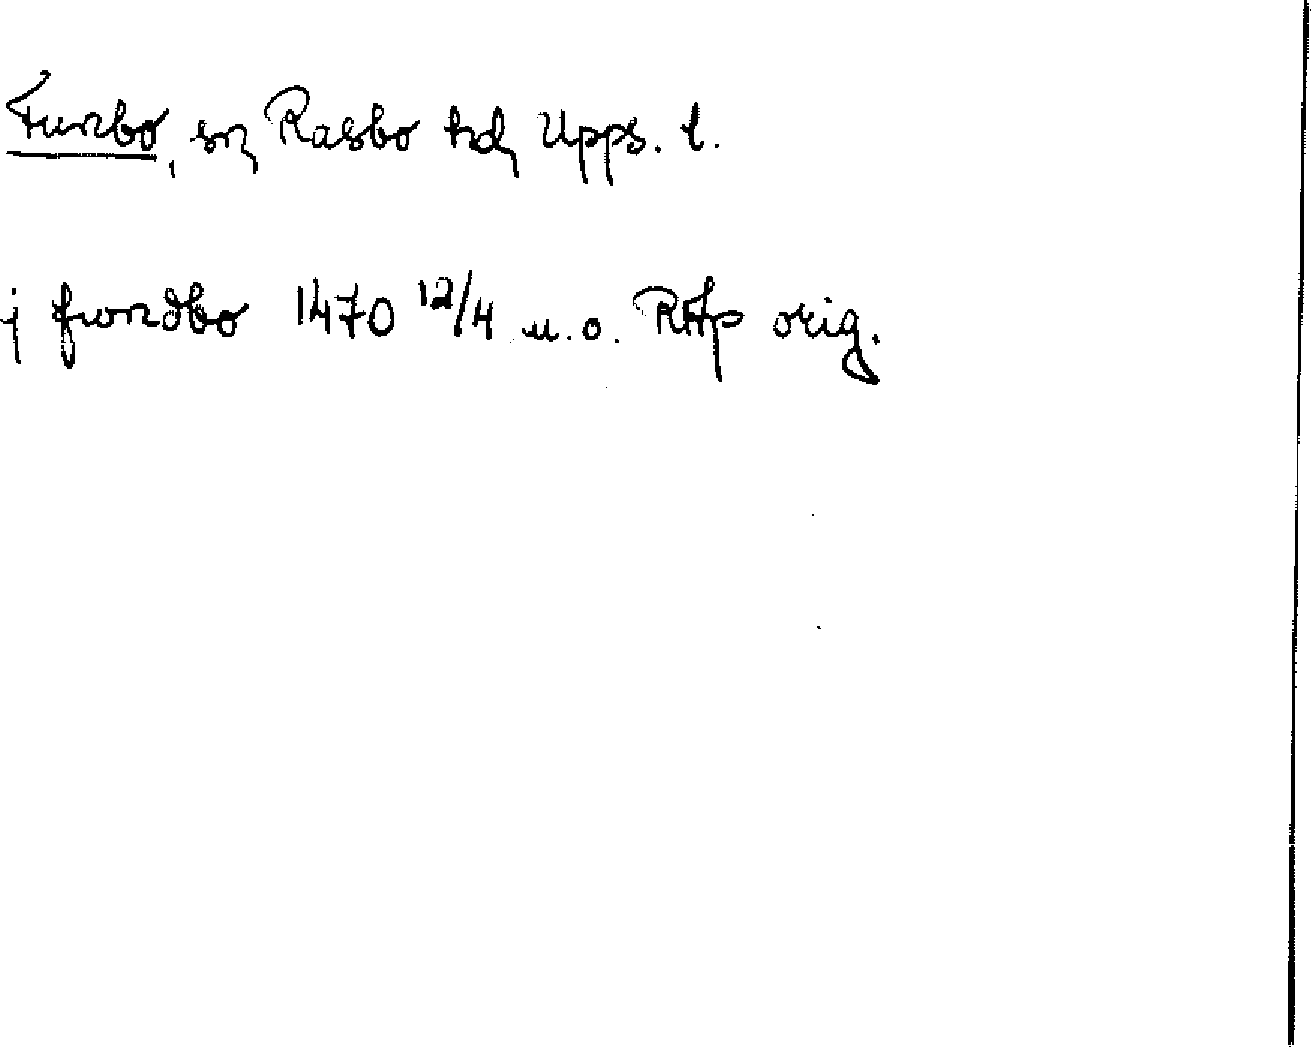 Funbo, sn Rasbo hd Upps. l.
j fwndbo 1470 12/4 u.o. RAp orig.